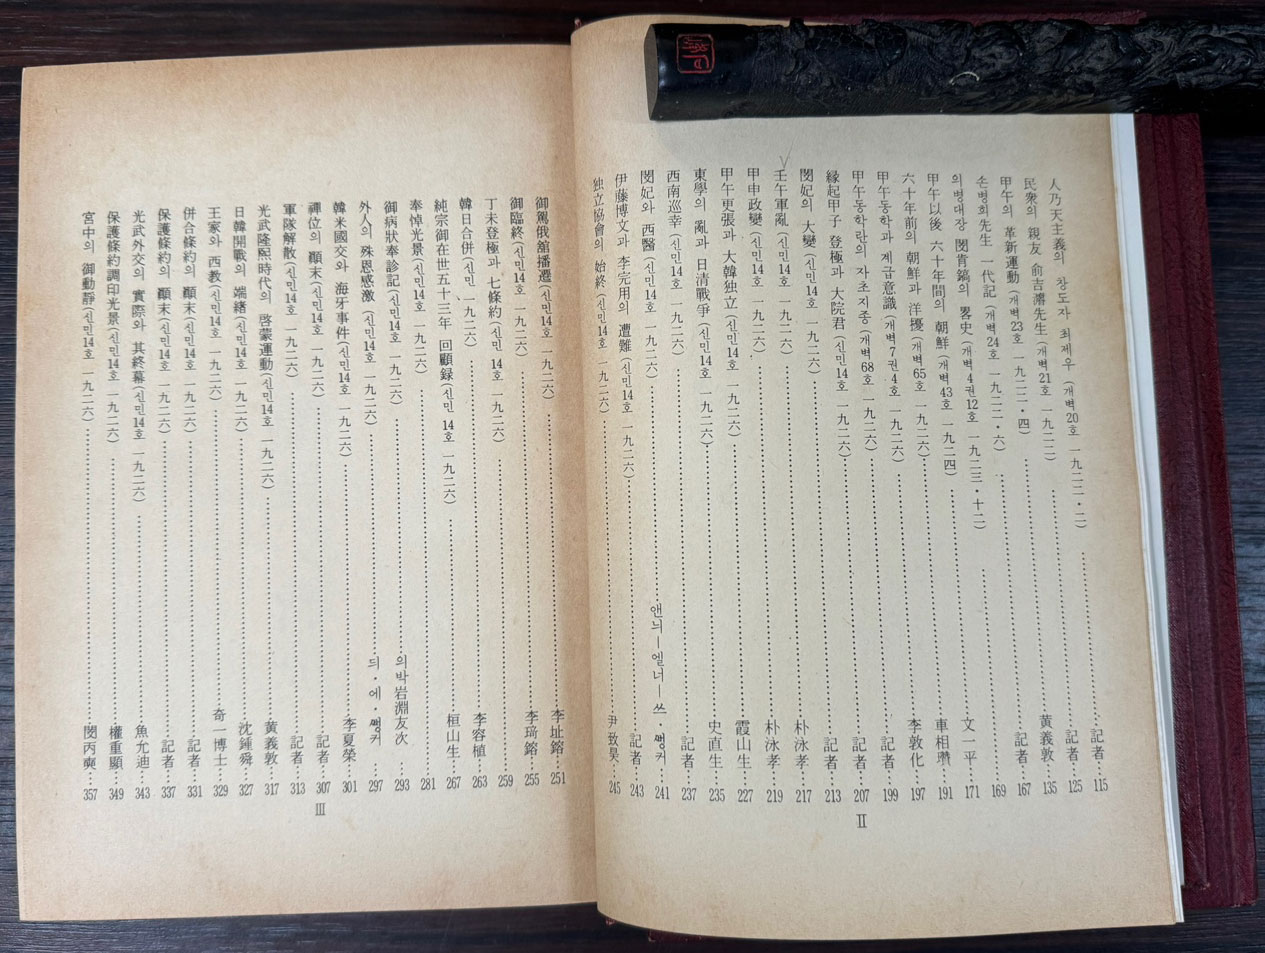 人乃天主義의 창도자 최제우 (개벽20호 一九二二·二) 記者 115
民衆의 親友 兪吉濬先生 (개벽21호 一九二二) 記者 125
甲午의 革新運動 (개벽23호 一九二二·四) 黃義敦 135
손병희先生 一代記 개벽24호 一九二二·六) 記者 167
의병대장 閔肯鎬의 畧史 (개벽4권12호 一九二三·十二) 169
甲午以後 六十年間의 朝鮮 (개벽43호 一九二四) 文一平 171
六十年前의 朝鮮과 洋擾 (개벽65호 一九二六) 車相瓚 191
甲午동학과 계급意識 (개벽7권4호 一九二六) 李敦化 197
甲午동학란의 자초지종 (개벽68호 一九二六) 記者 199
縁起甲子 登極과 大院君 (신민14호 一九二六) 記者 207
閔妃의 大變 (신민14호 一九二六) 記者 213
壬午軍亂 (신민14호 一九二六) 朴泳孝 217
甲申政變 (신민14호 一九二六) 朴泳孝 219
甲午更張과 大韓独立 (신민14호 一九二六) 霞山生 227
東學의 亂과 日清戰爭 (신민14호 一九二六) 史直生 235
西南巡幸 (신민14호 一九二六) 記者 237
閔妃와 西醫 (신민14호 一九二六) 앤늬—엘너—쓰·쌩커 241
伊藤博文과 李完用의 遭難 (신민14호 一九二六) 記者 243
独立協會의 始終 (신민14호 一九二六) 尹致昊 245
II
御駕俄舘播遷 (신민14호 一九二六) 李址鎔 251
御臨終 (신민14호 一九二六) 李琦鎔 255
丁未登極과 七條約 (신민14호 一九二六) 259
韓日合併 (신민14호 一九二六) 李容植 263
純宗御在世五十三年 回顧録 (신민14호 一九二六) 桓山生 267
奉悼光景 (신민14호 一九二六) 281
御病狀奉診記 (신민14호 一九二六) 의박岩淵友次 293
外人의 殊恩感激 (신민14호 一九二六) 듸·에·쌩커 297
韓米國交와 海牙事件 (신민14호 一九二六) 李夏榮 301
禪位의 顚末 (신민14호 一九二六) 記者 307
軍隊解散 (신민14호 一九二六) 記者 313
光武隆熙時代의 啓蒙運動 신민14호 一九二六) 黃義敦 317
日韓開戰의 端緖 (신민14호 一九二六) 沈鍾舜 327
王家와 西教 (신민14호 一九二六) 奇一博士 329
併合條約의 顚末 (신민14호 一九二六) 記者 331
保護條約의 顚末 (신민14호 一九二六) 記者 337
光武外交의 實際와 其終幕 (신민14호 一九二六) 魚允迪 343
保護條約調印光景 (신민14호 一九二六) 權重顯 349
宮中의 御動靜 (신민14호 一九二六) 閔丙奭 357
III